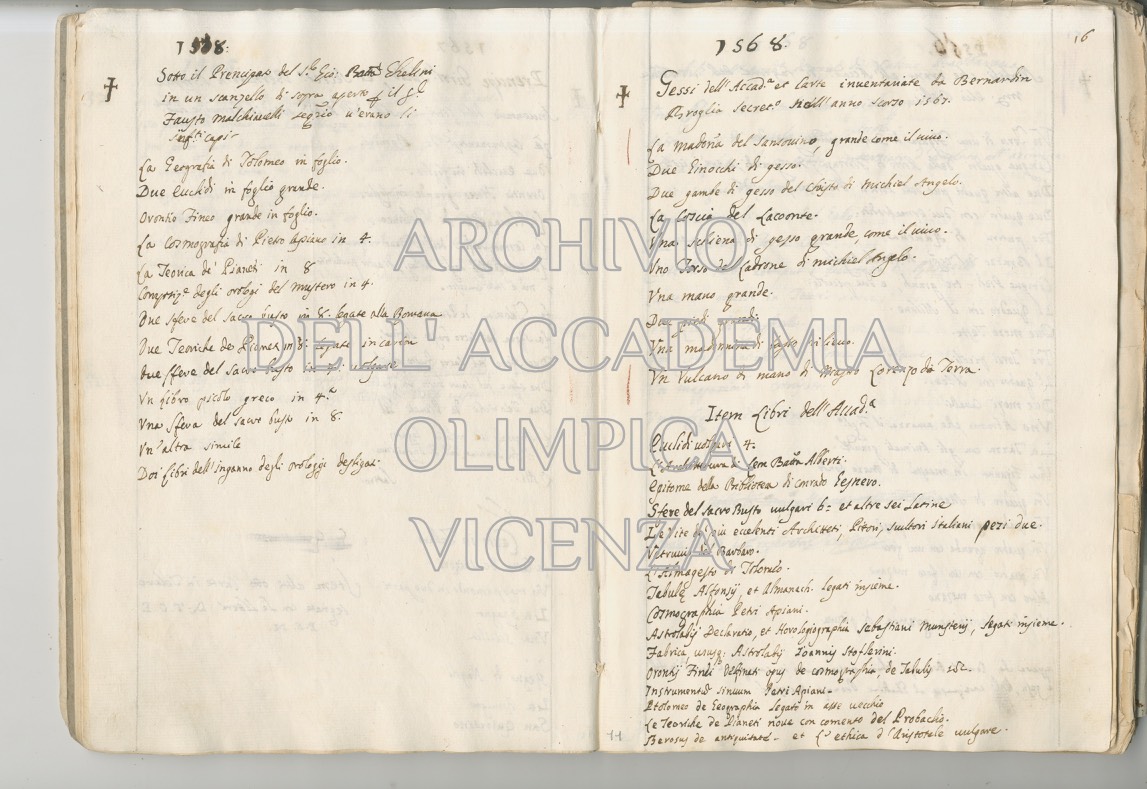 1568.
Sotto il Prencipao del S.r Gio: Batt.a Ghelini
in un scanzello di sopra aperto
Fausto seg.rio v'erano li
inf.ti capi
La Geografia di Tolomeo in foglio.
Due Euclidi in foglio grande.
Orontio Fineo grande in foglio.
La Cosmografia di Pietro Apiano in 4.
La Teorica de' Pianeti in 8
degli orologi del Mustero in 4.
Due sfere del sacro busto in 8. legate alla Romana
Due Teoriche de Pianeti in 8: legate in carton
Due sfere del sacro busto in volgare
Un libro picolo greco in 4.to
Una sfera del sacro busto in 8.
Un'altra simile
Doi libri dell'inganno degli orologgi desligati.
1568.
16
Gessi dell'Accad.a et carte inventariate da Bernardin
Broglia Secret.o nell'anno scorso 1567.
La Madona del Sansovino, grande come il vivo.
Due Ginocchi di gesso.
Due gambe di gesso del Christo di Michiel Angelo.
La Coscia del Lacoonte.
Una schiena di gesso grande, come il vivo.
Uno Torso de Ladrone di Michiel Angelo.
Una mano grande.
Due piedi grandi.
Una madonna di basso rilievo.
Un Vulcano di mano di Magro Lorenzo da Terra.
Item Libri dell'Accad.a
Euclidi volgari 4.
L'Architettura di Leon Batta Alberti.
Epitome della Biblioteca di Conrado Gesnero.
Sfere del sacro Busto vulgari 6= et altre sei Latine
Le Vite de più eccelenti Architeti, Pitori, Scultori italiani pezi due.
Vitruvio del Barbaro.
L'Almagesto di Tolomeo.
Tabule Alfonsij, et Almanach. legati insieme.
Cosmographia Petri Apiani.
Astrolabij Declaratio, et Horologiographia Sebastiani Munsterij, legati insieme.
Fabrica, ususq; Astrolabij Ioannis Stoflerini.
Orontij Finei Delfinati opus de cosmographia, de Tabulis
Instrumentum sinuum Petri Apiani
Ptolomeo de Geographia legato in asse vecchio
Le Teoriche de Pianeti nove con comento del Probachio.
Berosus de antiquitate et L'ethica d'Aristotele vulgare.
ARCHIVIO
DELL'ACCADEMIA
OLIMPICA
VICENZA